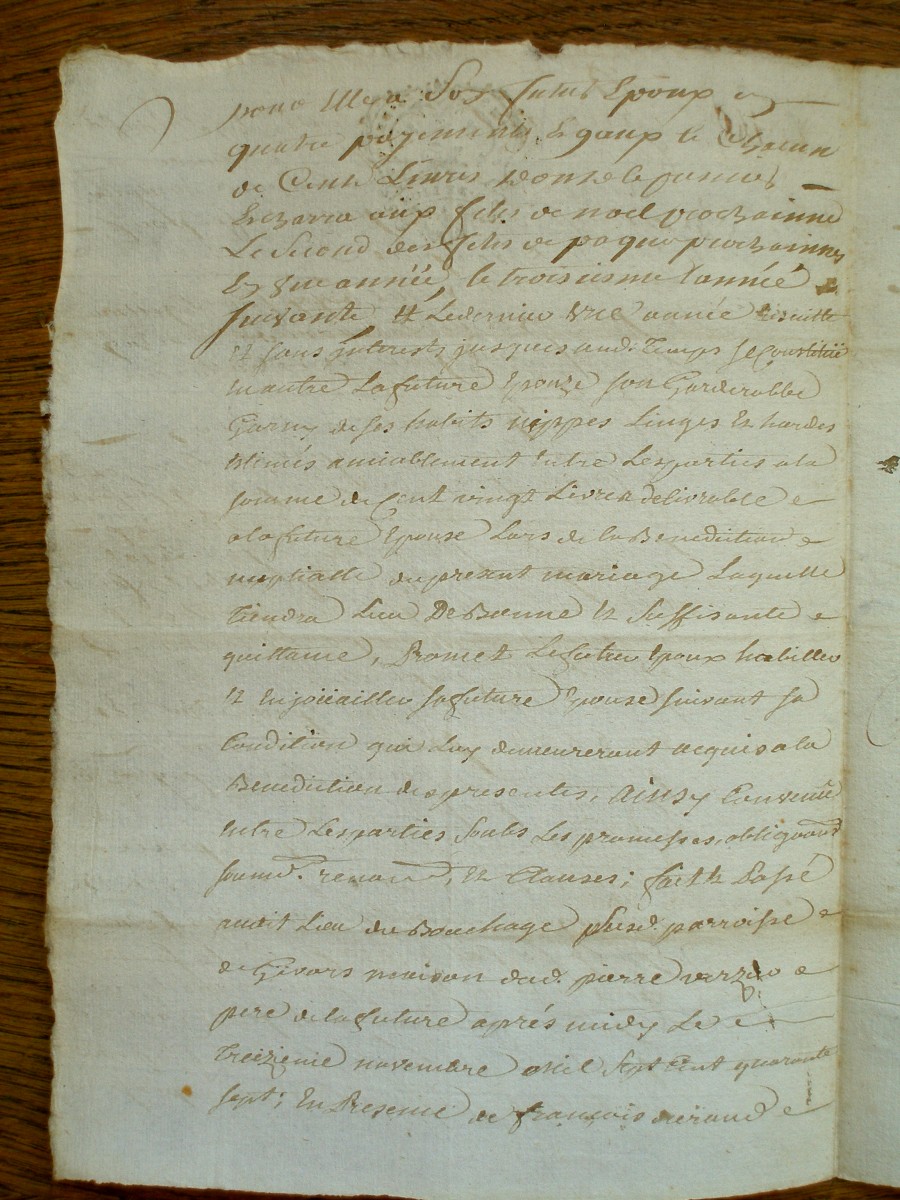 futur Epoux en
quatre payements Egaux le Chacun
de Cent Livres dont le premier
aux fetes de noel prochainne
Le Second des fetes de paque prochainnes
En une année, le troisieme l'année
suivante Et Le dernier une année Ensuitte
Et sans interests jusques aud. Temps se Constitüe
En outre La future Epouze son Garderobbe
Garny de ses habits nippes Linges Et hardes
Estimés amiablement Entre Les parties a la
somme de Cent vingt Livres delivrable
a la future Epouse Lors de la Benediction
nuptialle du present mariage Laquelle
Tiendra Lieu De Bonne Et Suffisante
quittance, Promet Le futur Epoux habiller
Et Enjoüailler sa future Epouse suivant sa
Condition qui Luy demeureront acquis a la
Benediction des presentes, Ainsy Convenü
Entre Les parties soubs Les promesses, obligaons
soumd. renond, Et Clauses; fait Et Passé
audit Lieu du Bouchage susd. parroisse
de Givors maison dud. pierre
pere de la future aprés midy Le
Treizieme novembre mil Sept Cent quarante
sept; En Presence de françois